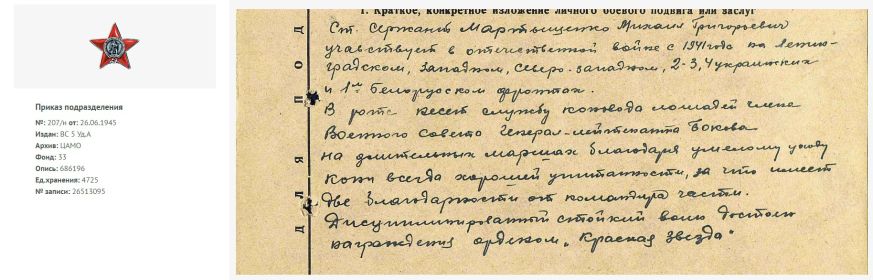 Приказ подразделения
№: 207/н от: 26.06.1945
Издан: ВС 5 Уд.А
Архив: ЦАМО
Фонд: 33
Опись: 686196
Ед.хранения: 4725
№ записи: 26513095
1. Краткое, конкретное изложение личного боевого подвига или заслуг
Ст. Сержант Мартыщенко Михаил Григорьевич
участвует в отечественной войне с 1941 года на Ленин-
градском, Западном, Северо-западном, 2-3, 4 украинских
и 1м Белорусском фронтах.
В роте несет службу коновода лошадей члена
Военного Совета Генерал-лейтенанта Бокова
на длительных маршах благодаря умелому уходу
кони всегда хорошей упитанности, за что имеет
две благодарности от командира части.
Дисциплинированный стойкий воин достоин
награждения орденом "Красная звезда"
ДЛЯ ПОД